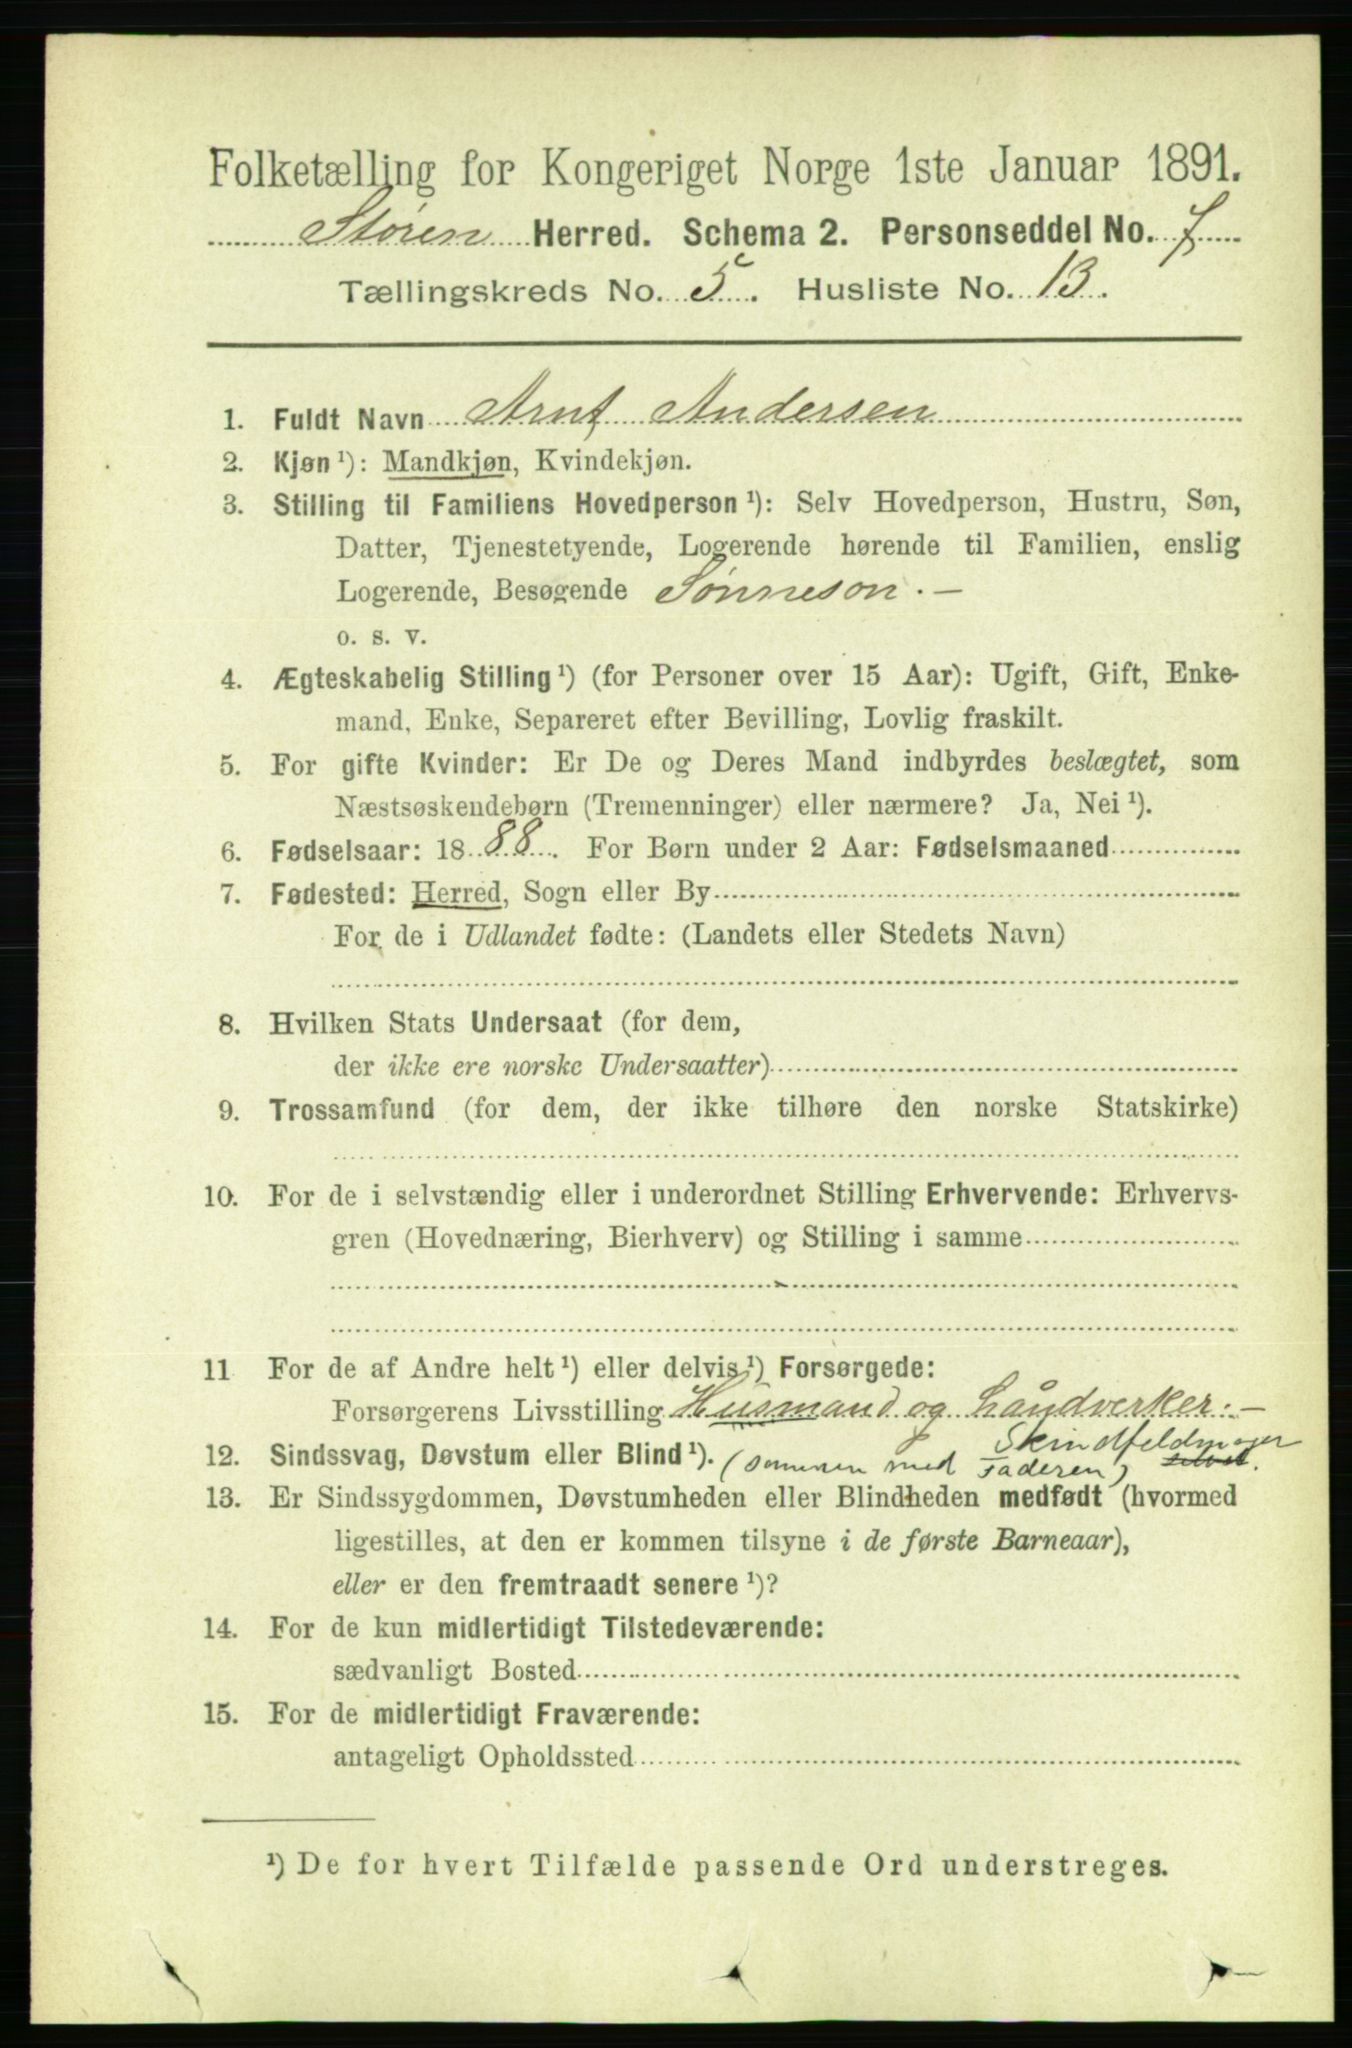 Folketælling for Kongeriget Norge 1ste Januar 1891.
Støren Herred. Schema 2. Personseddel No. 7
Tællingskreds No. 5. Husliste No. 13.
1. Fuldt Navn Arnt Andersen
2. Kjøn ¹): Mandkjøn, Kvindekjøn.
3. Stilling til Familiens Hovedperson ¹): Selv Hovedperson, Hustru, Søn,
Datter, Tjenestetyende, Logerende hørende til Familien, enslig
Logerende, Besøgende Sønneson. —
o. s. v.
4. Ægteskabelig Stilling ¹) (for Personer over 15 Aar): Ugift, Gift, Enke-
mand, Enke, Separeret efter Bevilling, Lovlig fraskilt.
5. For gifte Kvinder: Er De og Deres Mand indbyrdes beslægtet, som
Næstsøskendebørn (Tremenninger) eller nærmere? Ja, Nei ¹).
6. Fødselsaar: 1888. For Børn under 2 Aar: Fødselsmaaned
7. Fødested: Herred, Sogn eller By
For de i Udlandet fødte: (Landets eller Stedets Navn)
8. Hvilken Stats Undersaat (for dem,
der ikke ere norske Undersaatter)
9. Trossamfund (for dem, der ikke tilhøre den norske Statskirke)
10. For de i selvstændig eller i underordnet Stilling Erhvervende: Erhvervs-
gren (Hovednæring, Bierhverv) og Stilling i samme
11 For de af Andre helt ¹) eller delvis ¹) Forsørgede:
Forsørgerens Livsstilling Husmand og Håndverker. —
Skindfeldmager
12. Sindssvag, Døvstum eller Blind ¹). (sammen med Faderen)
13. Er Sindssygdommen, Døvstumheden eller Blindheden medfødt (hvormed
ligestilles, at den er kommen tilsyne i de første Barneaar),
eller er den fremtraadt senere ¹)?
14. For de kun midlertidigt Tilstedeværende:
sædvanligt Bosted
15. For de midlertidigt Fraværende:
antageligt Opholdssted
¹) De for hvert Tilfælde passende Ord understreges.